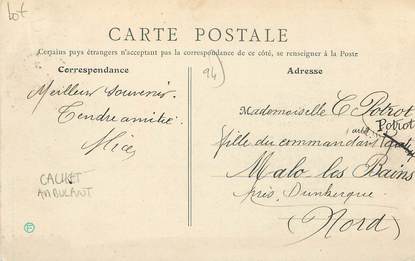 lot
CARTE POSTALE
Certains pays étrangers n'acceptant pas la correspondance de ce côté, se renseigner à la Poste
Correspondance
94
Adresse
Meilleur souvenir.
Tendre amitié.
Mademoiselle C. Potrot
Potrot
fille du commandant
Malo les Bains
près Dunkerque
(Nord)
AMBULANT
F